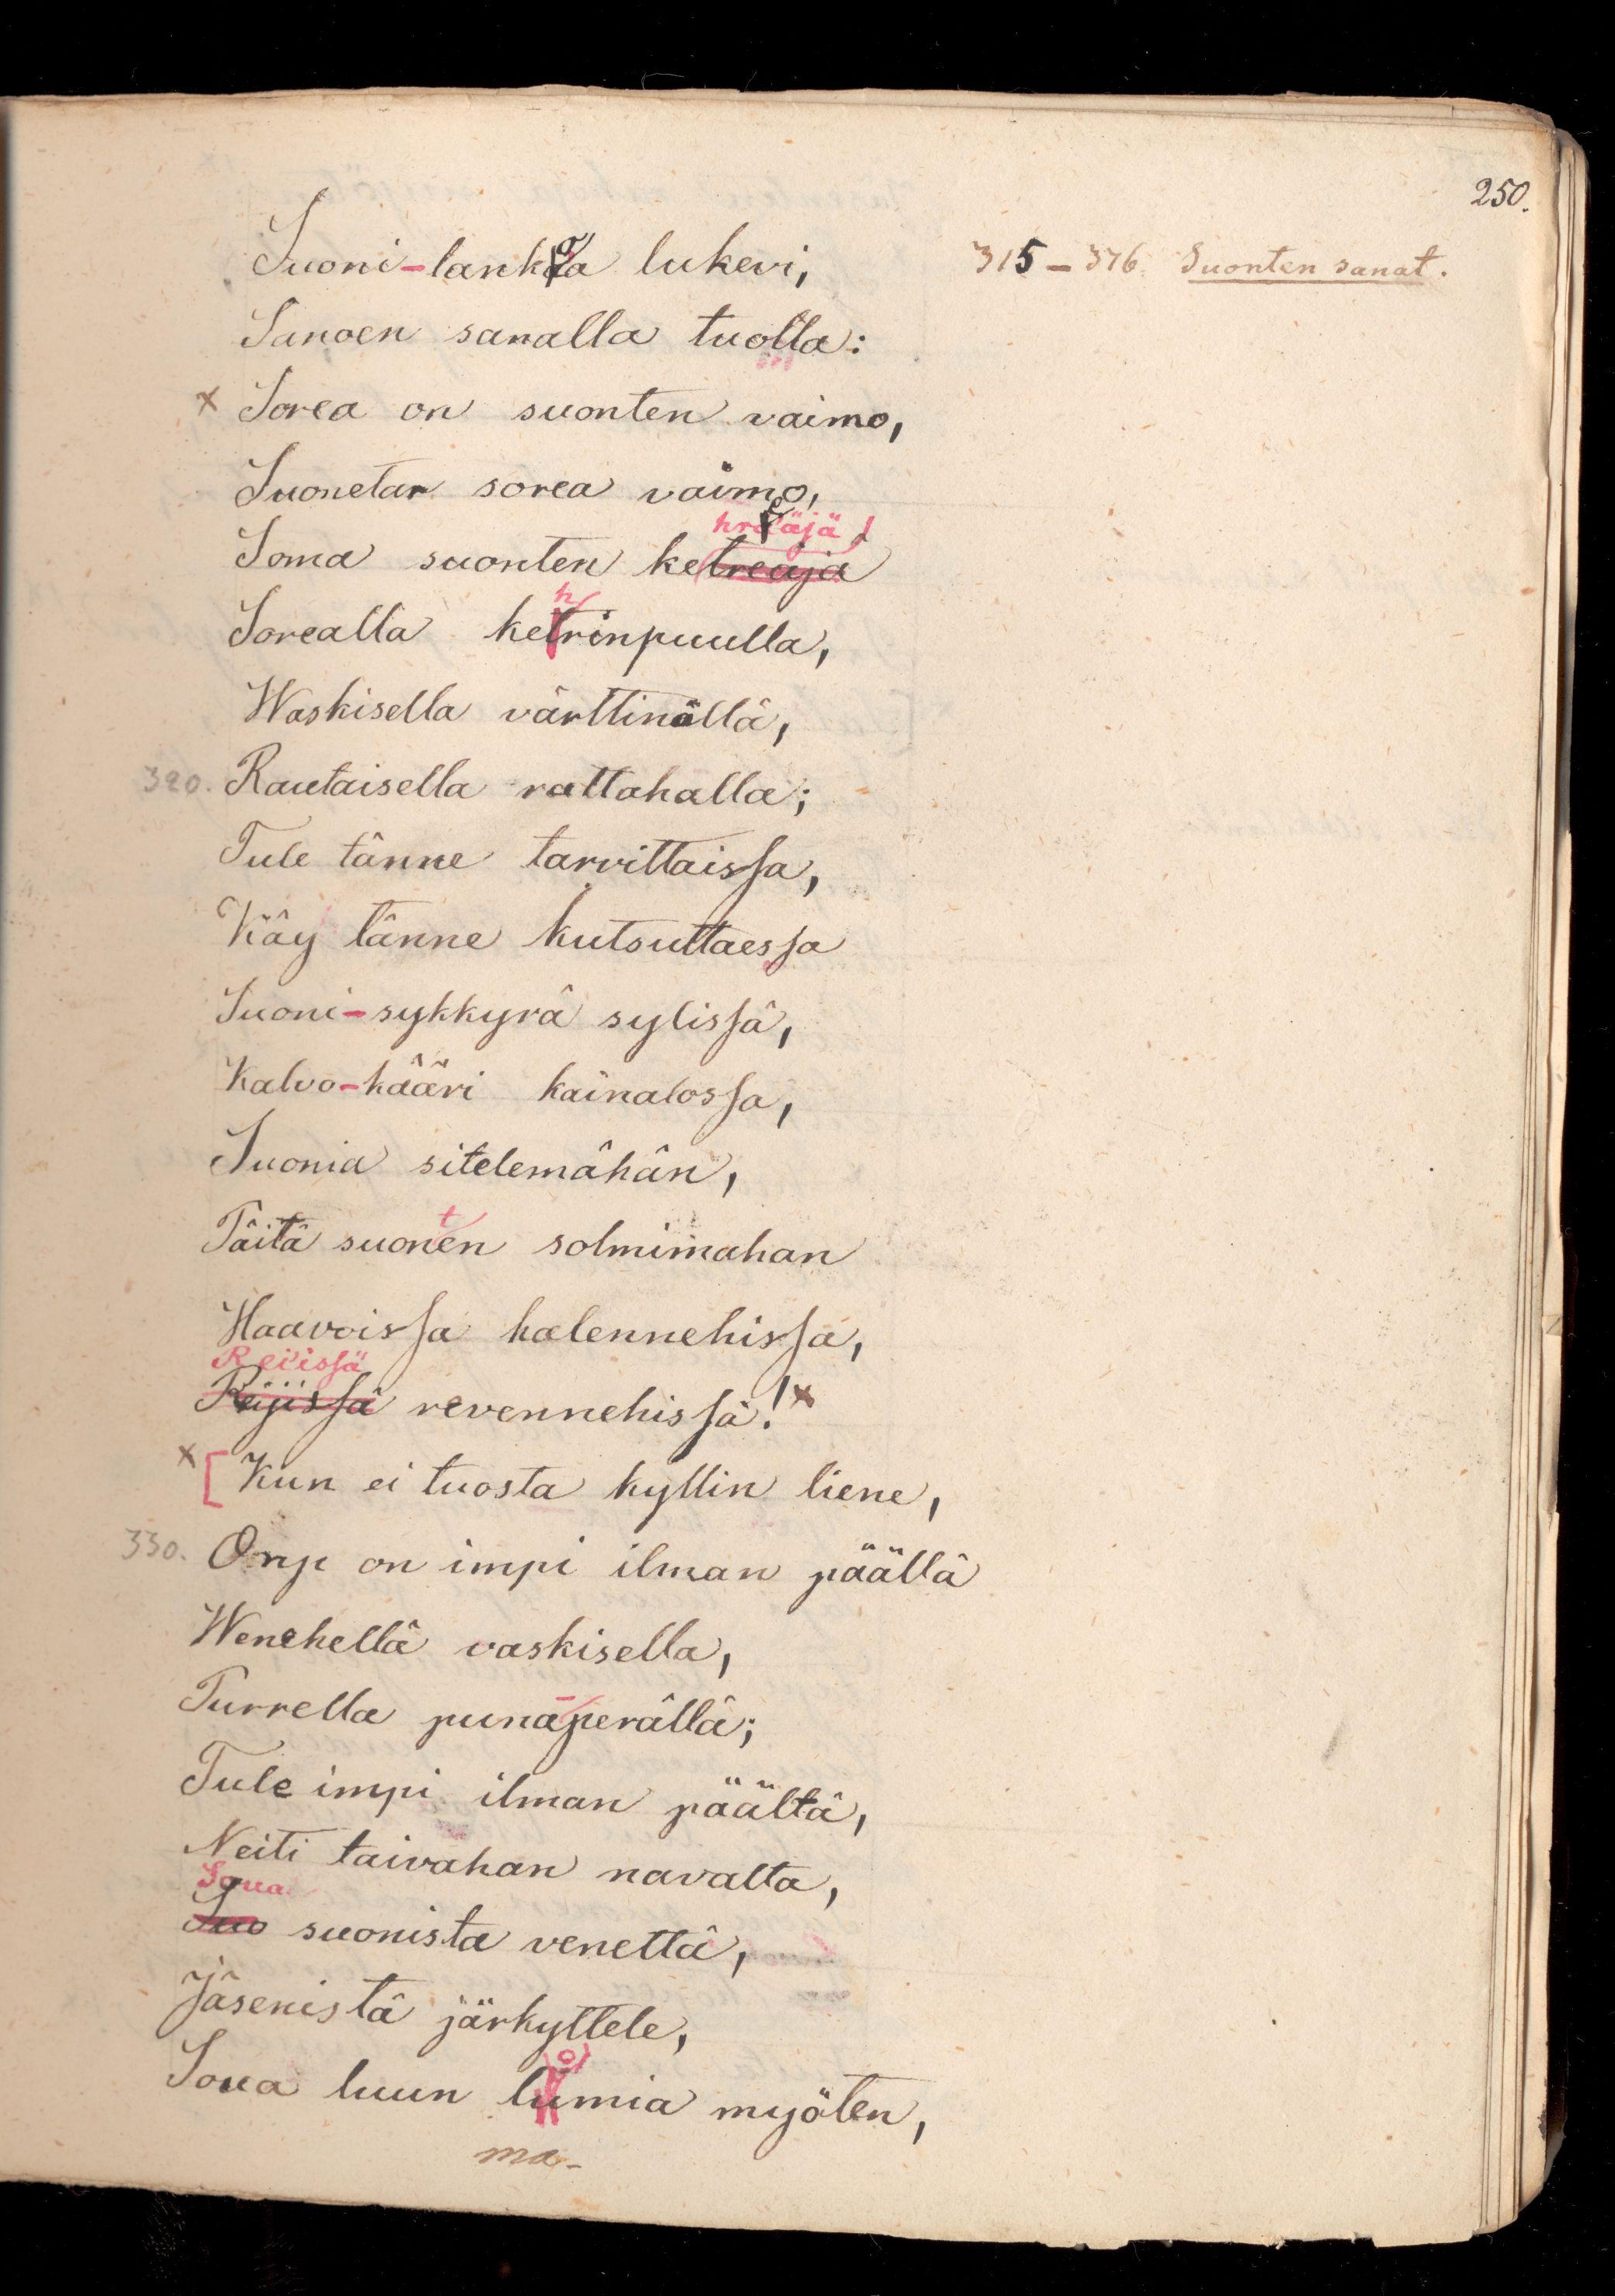 250.
315–376. Suonten sanat.
Suoni-lankoa lukevi,
Sanoen sanalla tuolla:
x Sorea on suonten vaimo,
Suonetar sorea vaimo,
hreäjä!
Soma suonten ketreäjä
h
Sorealla ketrinpuulla,
Waskisella värttinällä,
320. Rautaisella rattahalla;
Tule tänne tarvittaissa,
Käy tänne kutsuttaessa
Suoni-sykkyrä sylissä,
Kalvo-kääri kainalossa,
Suonia sitelemähän,
t
Päitä suonen solmimahan
Haavoissa halennehissa,
Reiissä
Reijissä revennehissä! x
x [Kun ei tuosta kyllin liene,
330. Onp on impi ilman päällä
Wenehellä vaskisella,
Purrella puna-perällä;
Tule impi ilman päältä,
Neiti taivahan navalta,
Soua
Suo suonista venettä,
Jäsenistä järkyttele,
o
Soua luun lumia myöten,
ma-